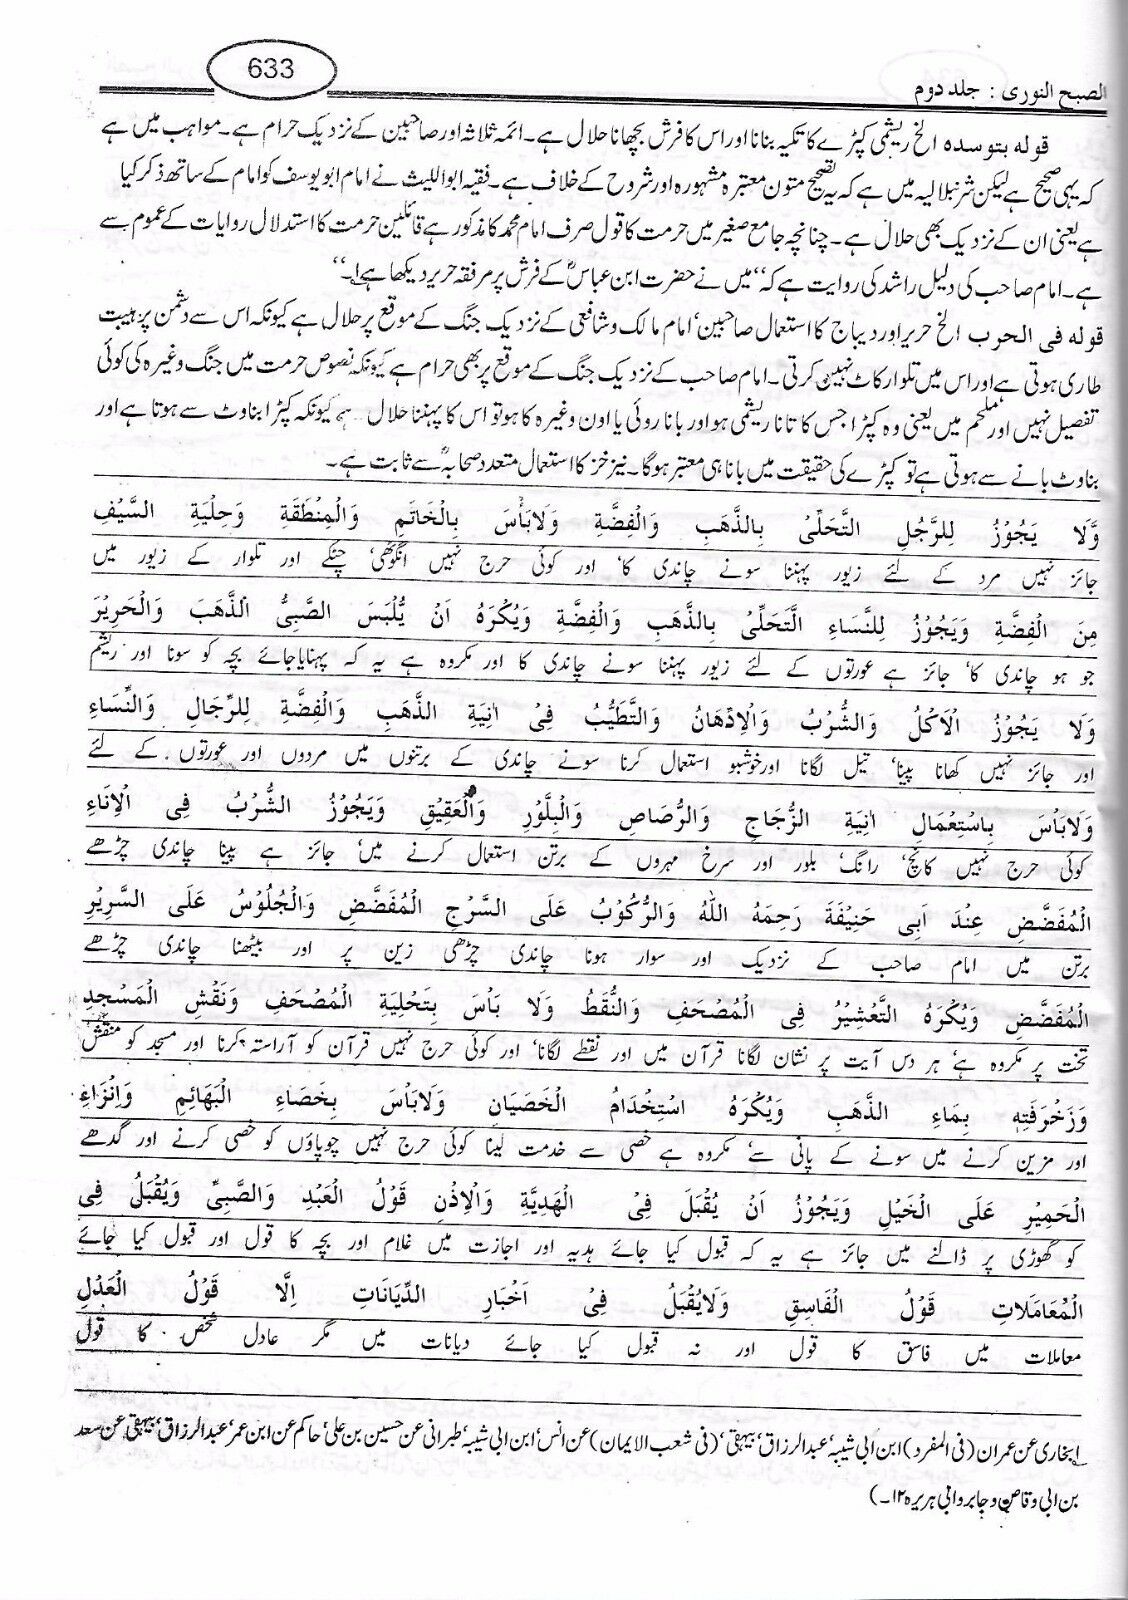 633
الصبح النوری : جلد دوم
قوله بتوسده الخ ریشمی کپڑے کا تکیہ بنانا اور اس کا فرش بچھانا حلال ہے۔ ائمہ ثلاثہ اور صاحبین کے نزدیک حرام ہے۔ مواہب میں ہے
کہ یہی صحیح ہے لیکن شرنبلالیہ میں ہے کہ یہ تصحیح متون معتبرہ مشہورہ اور شروح کے خلاف ہے۔ فقیہ ابواللیث نے امام ابویوسف کو امام کے ساتھ ذکر کیا
ہے یعنی ان کے نزدیک بھی حلال ہے۔ چنانچہ جامع صغیر میں حرمت کا قول صرف امام محمد کا مذکور ہے قائلین حرمت کا استدلال روایات کے عموم سے
ہے۔ امام صاحب کی دلیل راشد کی روایت ہے کہ ‘‘میں نے حضرت ابن عباسؓ کے فرش پر مرفقہ حریر دیکھا ہے۱۔’’
قوله فی الحرب الخ حریر اور دیباج کا استعمال صاحبین‘ امام مالک و شافعی کے نزدیک جنگ کے موقع پر حلال ہے کیونکہ اس سے دشمن پر ہیبت
طاری ہوتی ہے اور اس میں تلوار کاٹ نہیں کرتی۔ امام صاحب کے نزدیک جنگ کے موقع پر بھی حرام ہے کیونکہ نصوص حرمت میں جنگ وغیرہ کی کوئی
تفصیل نہیں اور ملحم میں یعنی وہ کپڑا جس کا تانا ریشمی ہو اور بانا روئی یا اون وغیرہ کا ہو تو اس کا پہننا حلال ہے کیونکہ کپڑا بناوٹ سے ہوتا ہے اور
بناوٹ بانے سے ہوتی ہے تو کپڑے کی حقیقت میں بانا ہی معتبر ہوگا۔ نیز خز کا استعمال متعدد صحابہؓ سے ثابت ہے۔
وَّلَا يَجُوْزُ لِلرَّجُلِ التَّحَلِّیْ بِالذَّهَبِ وَالْفِضَّةِ وَلَابَأْسَ بِالْخَاتَمِ وَالْمِنْطَقَةِ وَحِلْيَةِ السَّيْفِ
جائز نہیں مرد کے لئے زیور پہننا سونے چاندی کا‘ اور کوئی حرج نہیں انگوٹھی‘ پٹکے اور تلوار کے زیور میں
مِنَ الْفِضَّةِ وَيَجُوْزُ لِلنِّسَاءِ التَّحَلِّیْ بِالذَّهَبِ وَالْفِضَّةِ وَيُكْرَهُ اَنْ يُّلْبَسَ الصَّبِیُّ الذَّهَبَ وَالْحَرِيْرَ
جو ہو چاندی کا‘ جائز ہے عورتوں کے لئے زیور پہننا سونے چاندی کا اور مکروہ ہے یہ کہ پہنایا جائے بچہ کو سونا اور ریشم
وَلَا يَجُوْزُ الْاَكْلُ وَالشُّرْبُ وَالْاِدِّهَانُ وَالتَّطَيُّبُ فِیْ اٰنِيَةِ الذَّهَبِ وَالْفِضَّةِ لِلرِّجَالِ وَالنِّسَاءِ
اور جائز نہیں کھانا پینا‘ تیل لگانا اور خوشبو استعمال کرنا سونے چاندی کے برتنوں میں مردوں اور عورتوں کے لئے
وَلَابَاْسَ بِاسْتِعْمَالِ اٰنِيَةِ الزُّجَاجِ وَالرَّصَاصِ وَالْبِلَّوْرِ وَالْعَقِيْقِ وَيَجُوْزُ الشُّرْبُ فِی الْاِنَاءِ
کوئی حرج نہیں کانچ‘ رانگ‘ بلور اور سرخ مہروں کے برتن استعمال کرنے میں‘ جائز ہے پینا چاندی چڑھے
الْمُفَضَّضِ عِنْدَ اَبِی حَنِيْفَةَ رَحِمَهُ اللّٰهُ وَالرُّكُوْبُ عَلَی السَّرْجِ الْمُفَضَّضِ وَالْجُلُوْسُ عَلَی السَّرِيْرِ
برتن میں امام صاحب کے نزدیک اور سوار ہونا چاندی چڑھی زین پر اور بیٹھنا چاندی چڑھے
الْمُفَضَّضِ وَيُكْرَهُ التَّعْشِيْرُ فِی الْمُصْحَفِ وَالنُّقَطُ وَلَا بَاْسَ بِتَحْلِيَةِ الْمُصْحَفِ وَنَقْشِ الْمَسْجِدِ
تخت پر مکروہ ہے‘ ہر دس آیت پر نشان لگانا قرآن میں اور نقطے لگانا‘ اور کوئی حرج نہیں قرآن کو آراستہ کرنا اور مسجد کو منقش
وَزَخْرَفَتِهٖ بِمَاءِ الذَّهَبِ وَيُكْرَهُ اسْتِخْدَامُ الْخَصْيَانِ وَلَابَأْسَ بِخَصَاءِ الْبَهَائِمِ وَاِنْزَاءِ
اور مزین کرنے میں سونے کے پانی سے‘ مکروہ ہے خصی سے خدمت لینا کوئی حرج نہیں چوپاؤں کو خصی کرنے اور گدھے
الْحَمِيْرِ عَلَی الْخَيْلِ وَيَجُوْزُ اَنْ يُقْبَلَ فِیْ الْهَدِيَّةِ وَالْاِذْنِ قَوْلُ الْعَبْدِ وَالصَّبِیِّ وَيُقْبَلُ فِی
کو گھوڑی پر ڈالنے میں جائز ہے یہ کہ قبول کیا جائے ہدیہ اور اجازت میں غلام اور بچہ کا قول اور قبول کیا جائے
الْمُعَامَلَاتِ قَوْلُ الْفَاسِقِ وَلَايُقْبَلُ فِیْ اَخْبَارِ الدِّيَانَاتِ اِلَّا قَوْلُ الْعَدْلِ
معاملات میں فاسق کا قول اور نہ قبول کیا جائے دیانات میں مگر عادل شخص کا قول
۱بخاری عن عمران (فی المفرد) ابن ابی شیبہ‘ عبدالرزاق‘ بیہقی‘ (فی شعب الایمان) عن انس‘ ابن ابی شیبہ‘ طبرانی عن حسین بن علی‘ حاکم عن ابن عمر‘ عبدالرزاق‘ بیہقی عن سعد
بن ابی وقاص و جابر و ابی ہریرہ ۱۲۔)